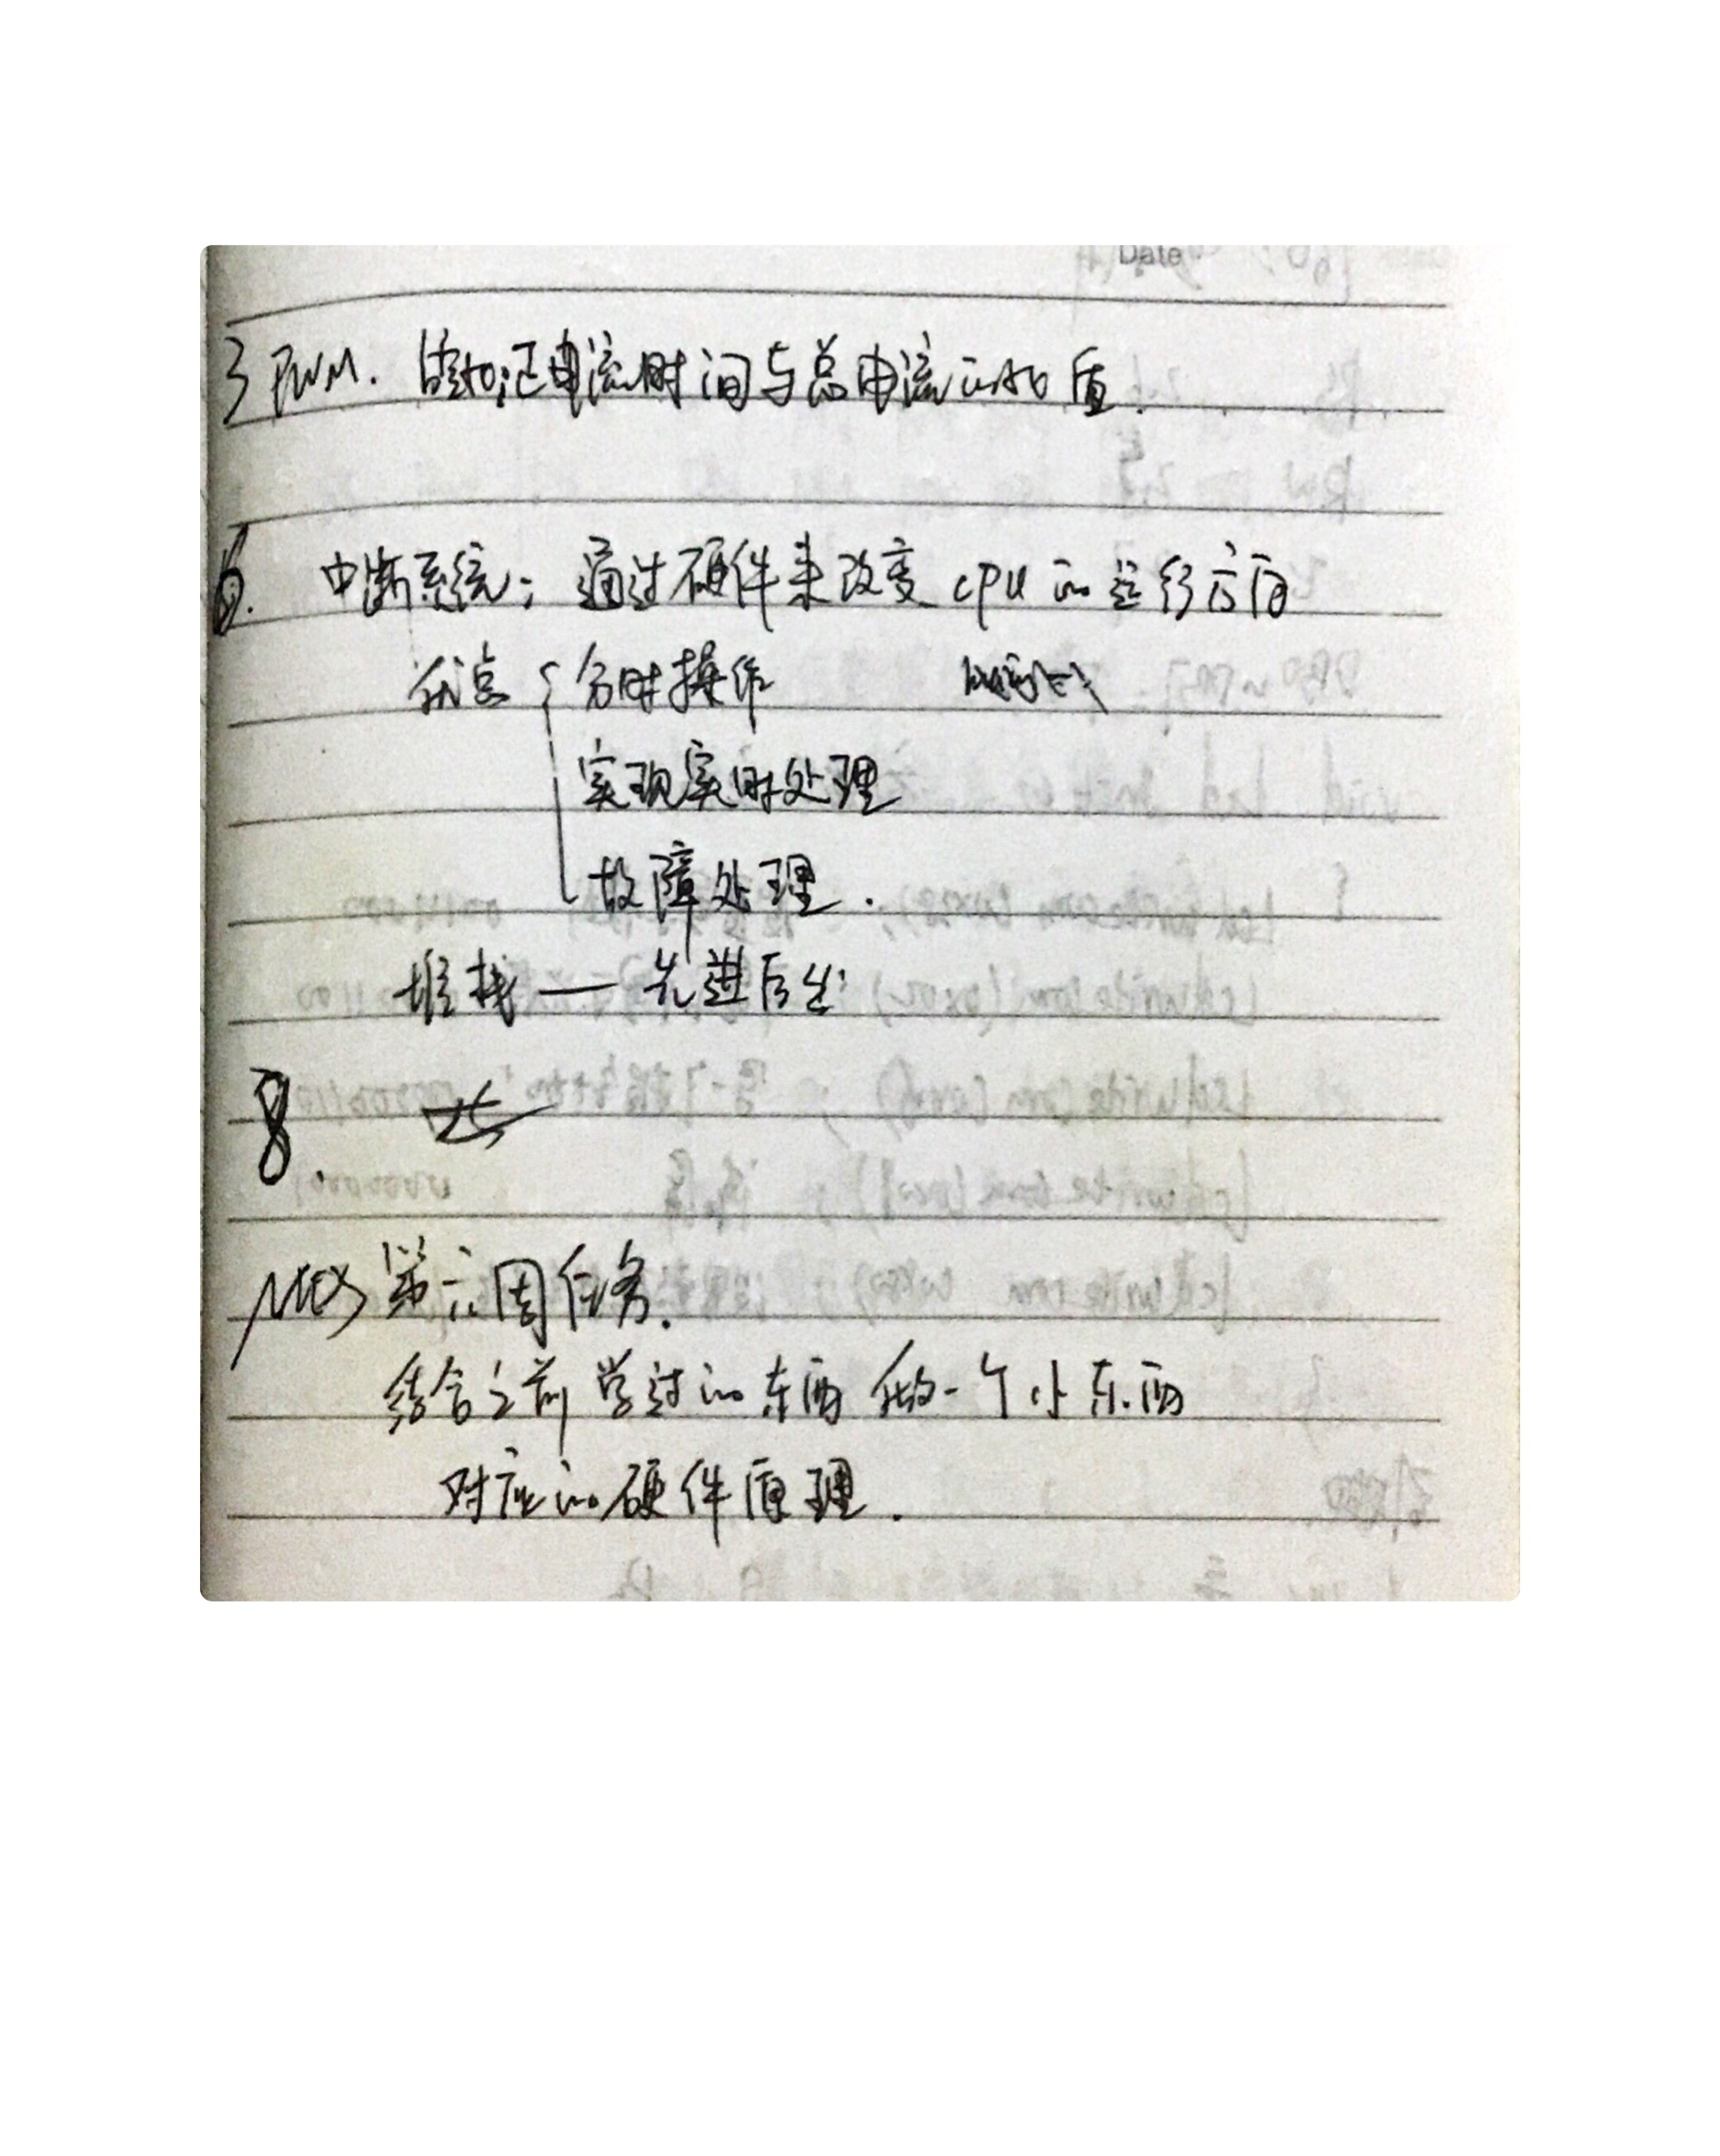 Date
3 PWM. 电流时间与总电流的比值.
6. 中断系统: 通过硬件来改变 CPU 的运行方向
优点 { 分时操作
实现实时处理
故障处理.
堆栈 — 先进后出
8.
第六周任务.
结合之前学过的东西 做一个小东西
对应的硬件原理.